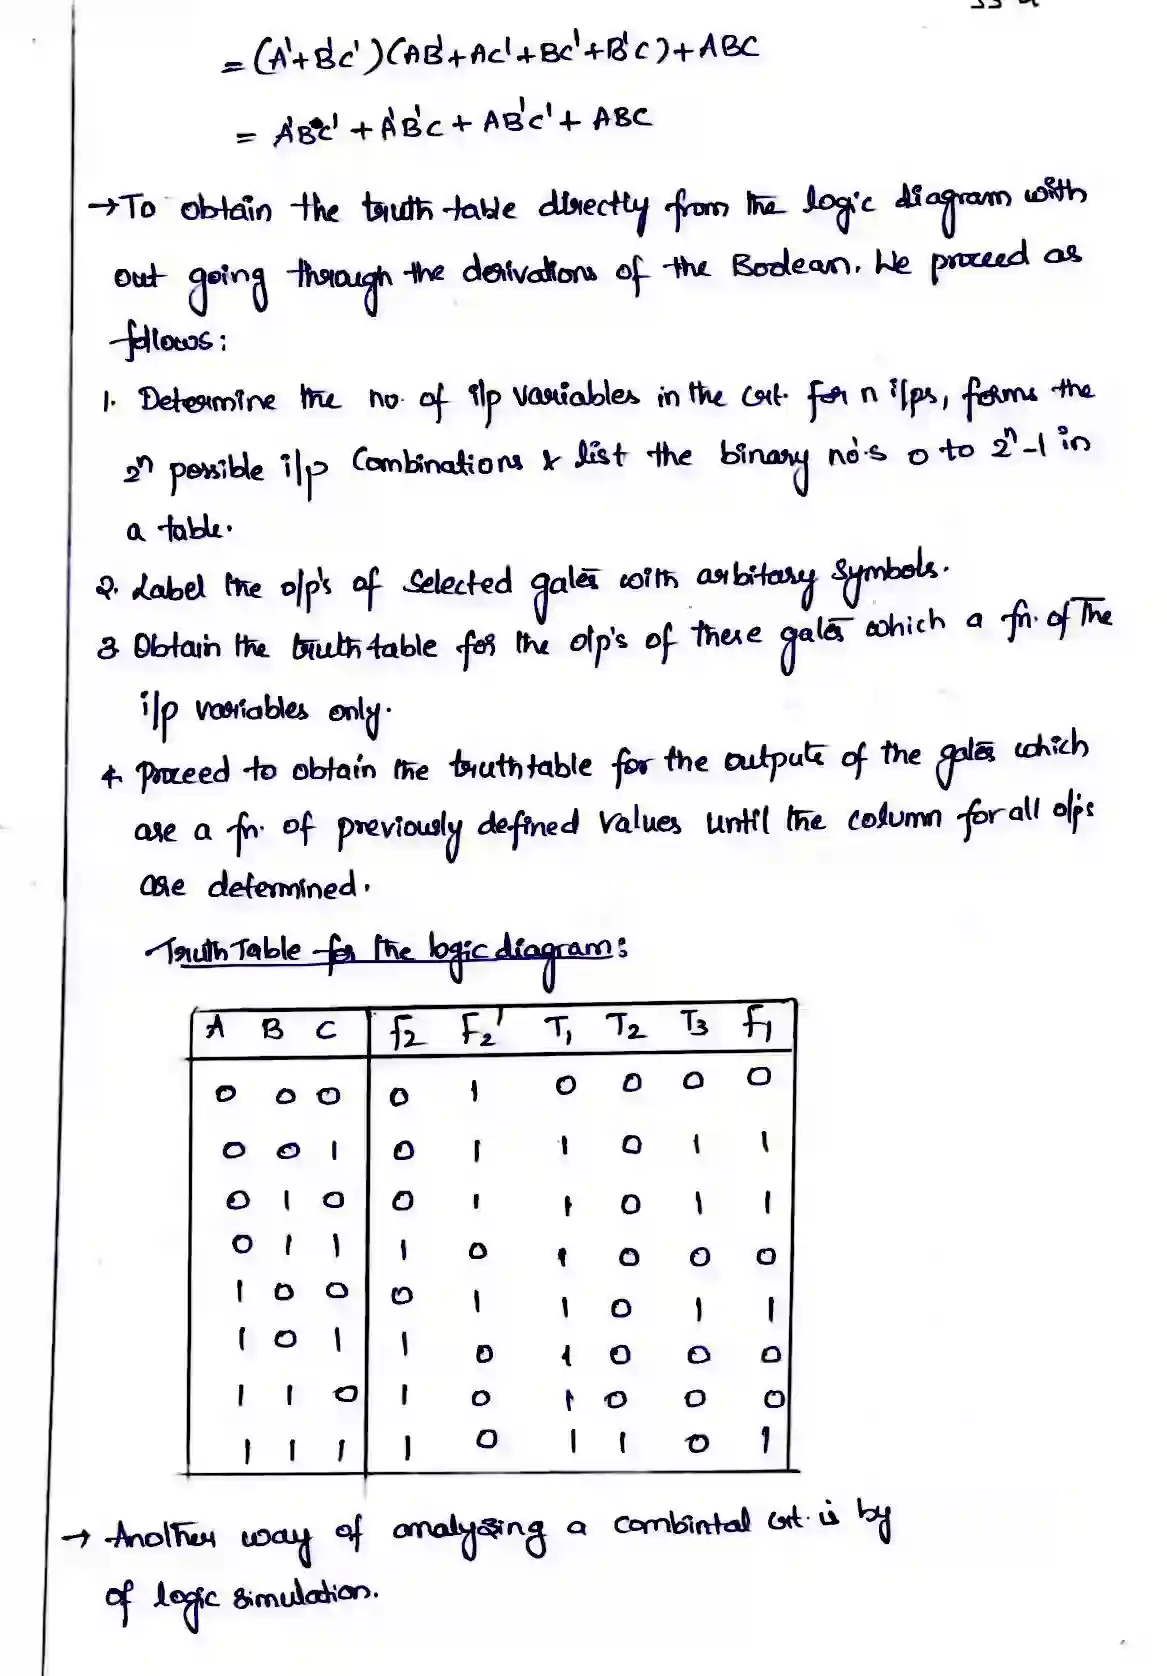 = (A'+B'C')(AB'+AC'+BC'+B'C)+ABC
= A'BC' + A'B'C + AB'C' + ABC
→To obtain the truth table directly from the logic diagram with
out going through the derivations of the Boolean. We proceed as
follows:
1. Determine the no. of i/p variables in the crt. for n i/ps, forms the
2ⁿ possible i/p Combinations & list the binary no's 0 to 2ⁿ-1 in
a table.
2. Label the o/p's of Selected gates with arbitary Symbols.
3 Obtain the truth table for the o/p's of these gates which a fn. of The
i/p variables only.
4. Proceed to obtain the truth table for the outputs of the gates which
are a fn. of previously defined Values until the column for all o/ps
are determined.
Truth Table for the logic diagram:
A B C F2 F2' T1 T2 T3 F1
0 0 0 0 1 0 0 0 0
0 0 1 0 1 1 0 1 1
0 1 0 0 1 1 0 1 1
0 1 1 1 0 1 0 0 0
1 0 0 0 1 1 0 1 1
1 0 1 1 0 1 0 0 0
1 1 0 1 0 1 0 0 0
1 1 1 1 0 1 1 0 1
→ Another way of analyzing a combintal crt. is by
of logic simulation.